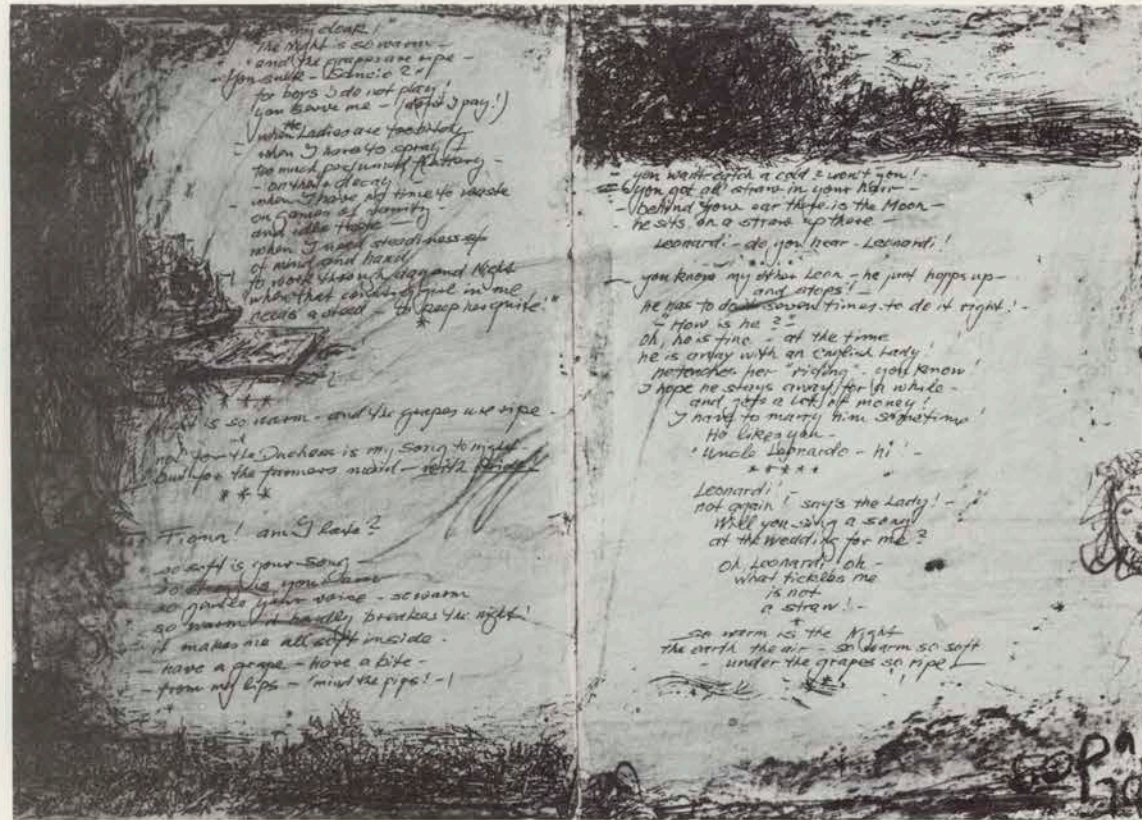 my cloak!"
"The Night is so warm -
and the grapes are ripe -
You sulk - Sancio?"
for boys I do not play!
you serve me - (don't I pay!)
when the Ladies are too bitchy
when I have to spray
too much perfumed flattery -
- on their decay
when I have no time to waste
on games of vanity -
and idle those -
when I need steadiness of
of mind and hand
to work through day and Night
when that coiled girl in me
needs a steed - to keep her quite."
*
* * *
Night is so warm - and the grapes are ripe -
not for the Duchess is my song to night
but for the farmers maid -
* * *
Fiona! am I late?
so soft is your song
so strong is your arm
so gentle your voice - so warm
so warm it hardly breakes the night!
it makes me all soft inside -
- have a grape - have a bite -
- from my lips - 'mind the pips! -
- you want catch a cold - won't you! -
you got all straw in your hair -
- behind your ear there is the Moon -
- he sits on a straw up there -
Leonardi - do you hear - Leonardi!
you know my other Leon - he just hopps up -
and stops! -
he has to do it seven times to do it right! -
- "How is he?" -
oh, he is fine - at the time
he is away with an english Lady!
he teaches her "riding" - you know!
I hope he stays away for a while -
and gets a lot of money!
I have to marry him sometime!
He likes you -
"Uncle Leonardo - hi! -
* * * * *
Leonardi! -
not again! say's the Lady! -
Will you sing a song
at the wedding for me?
Oh, Leonardi oh -
what tickles me
is not
a straw! -
*
so warm is the Night
the earth the air - so warm so soft
- under the grapes so ripe!